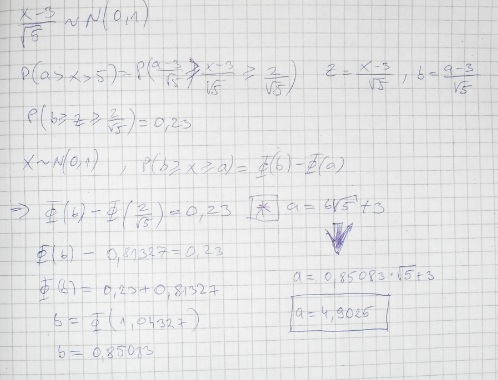 x-3/√5 ~ N(0,1)
P(a>x>5) = P(a-3/√5 ≥ x-3/√5 ≥ 2/√5)   z = x-3/√5 , b = a-3/√5
P(b ≥ z ≥ 2/√5) = 0,23
X ~ N(0,1) , P(b ≥ x ≥ a) = Φ(b) - Φ(a)
⇒ Φ(b) - Φ(2/√5) = 0,23   * a = b√5 + 3
Φ(b) - 0,81327 = 0,23
Φ(b) = 0,23 + 0,81327
b = Φ(1,04327)
b = 0,85083
a = 0,85083 · √5 + 3
a = 4,9025